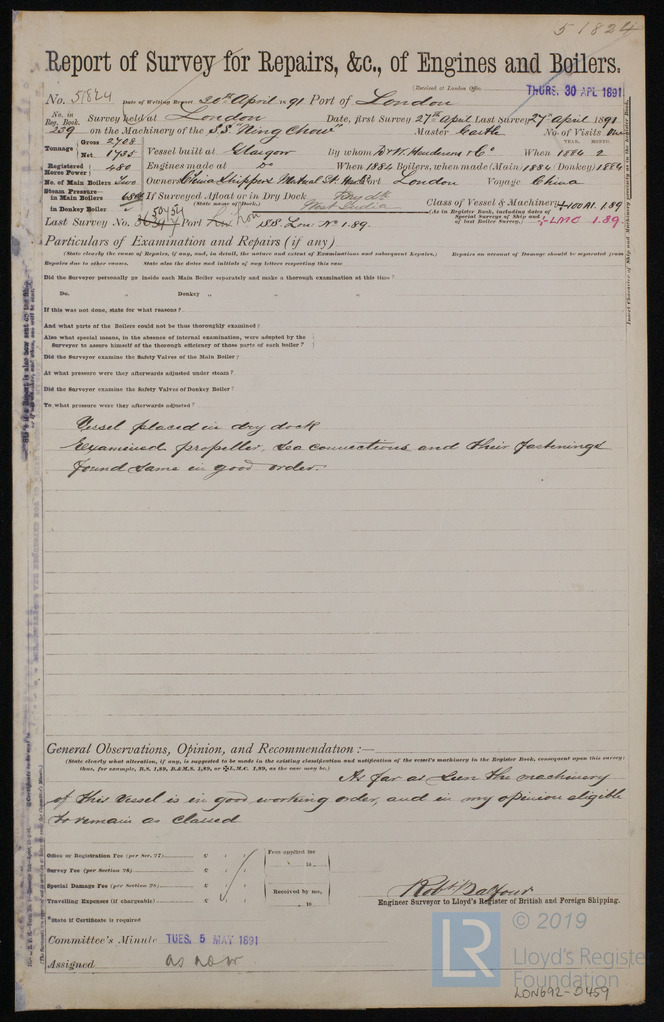 51824
Report of Survey for Repairs, &c., of Engines and Boilers.
(Received at London Office THURS. 30 APL 1891
No. 51824 Date of Writing Report 20th April 1891 Port of London
No. in Reg. Book. Survey held at London Date, first Survey 27th April Last Survey 27th April 1891
239 on the Machinery of the S.S. "Ning Chow" Master Castle No of Visits
Tonnage Gross 2708 Net 1735 Vessel built at Glasgow By whom D & W. Henderson & Co When 1884 2
YEAR. MONTH.
Registered Horse Power 480 Engines made at Do When 1884 Boilers, when made (Main) 1884 (Donkey) 1884
No. of Main Boilers Two Owners China Shippers Mutual St. Port London Voyage China
Steam Pressure— in Main Boilers If Surveyed Afloat or in Dry Dock Dry dk Class of Vessel & Machinery +100A1. 1.89
in Donkey Boiler (State name of Dock.) West India (As in Register Book, including dates of Special Surveys of Ship and of last Boiler Survey.) +LMC 1.89
Last Survey No. Port Lon. No 1.89.
Particulars of Examination and Repairs (if any)
(State clearly the cause of Repairs, if any, and, in detail, the nature and extent of Examinations and subsequent Repairs.) Repairs on account of Damage should be separated from
Repairs due to other causes. State also the dates and initials of any letters respecting this case
Did the Surveyor personally go inside each Main Boiler separately and make a thorough examination at this time?
Do. Donkey „ „ „
If this was not done, state for what reasons?
And what parts of the Boilers could not be thus thoroughly examined?
Also what special means, in the absence of internal examination, were adopted by the
Surveyor to assure himself of the thorough efficiency of those parts of each boiler?
Did the Surveyor examine the Safety Valves of the Main Boiler?
At what pressure were they afterwards adjusted under steam?
Did the Surveyor examine the Safety Valves of Donkey Boiler?
To what pressure were they afterwards adjusted?
Vessel placed in dry dock
Examined propeller, sea connections and their fastenings
found same in good order.
General Observations, Opinion, and Recommendation:—
(State clearly what alteration, if any, is suggested to be made in the existing classification and notification of the vessel's machinery in the Register Book, consequent upon this survey:
thus, for example, B.S. 1,89, B.&M.S. 1,89, or ✠L.M.C. 1,89, as the case may be.)
As far as seen the machinery
of this vessel is in good working order, and in my opinion eligible
to remain as classed
Office or Registration Fee (per Sec. 27) £ : : Fees applied for
Survey Fee (per Section 28) £ : : 18
Special Damage Fee (per Section 28) £ : : Received by me,
Travelling Expenses (if chargeable) £ : : 18
Robt Balfour
Engineer Surveyor to Lloyd's Register of British and Foreign Shipping.
*State if Certificate is required
Committee's Minute TUES. 5 MAY 1891
Assigned as now
LR
© 2019
Lloyd's Register
Foundation
LON692-0459